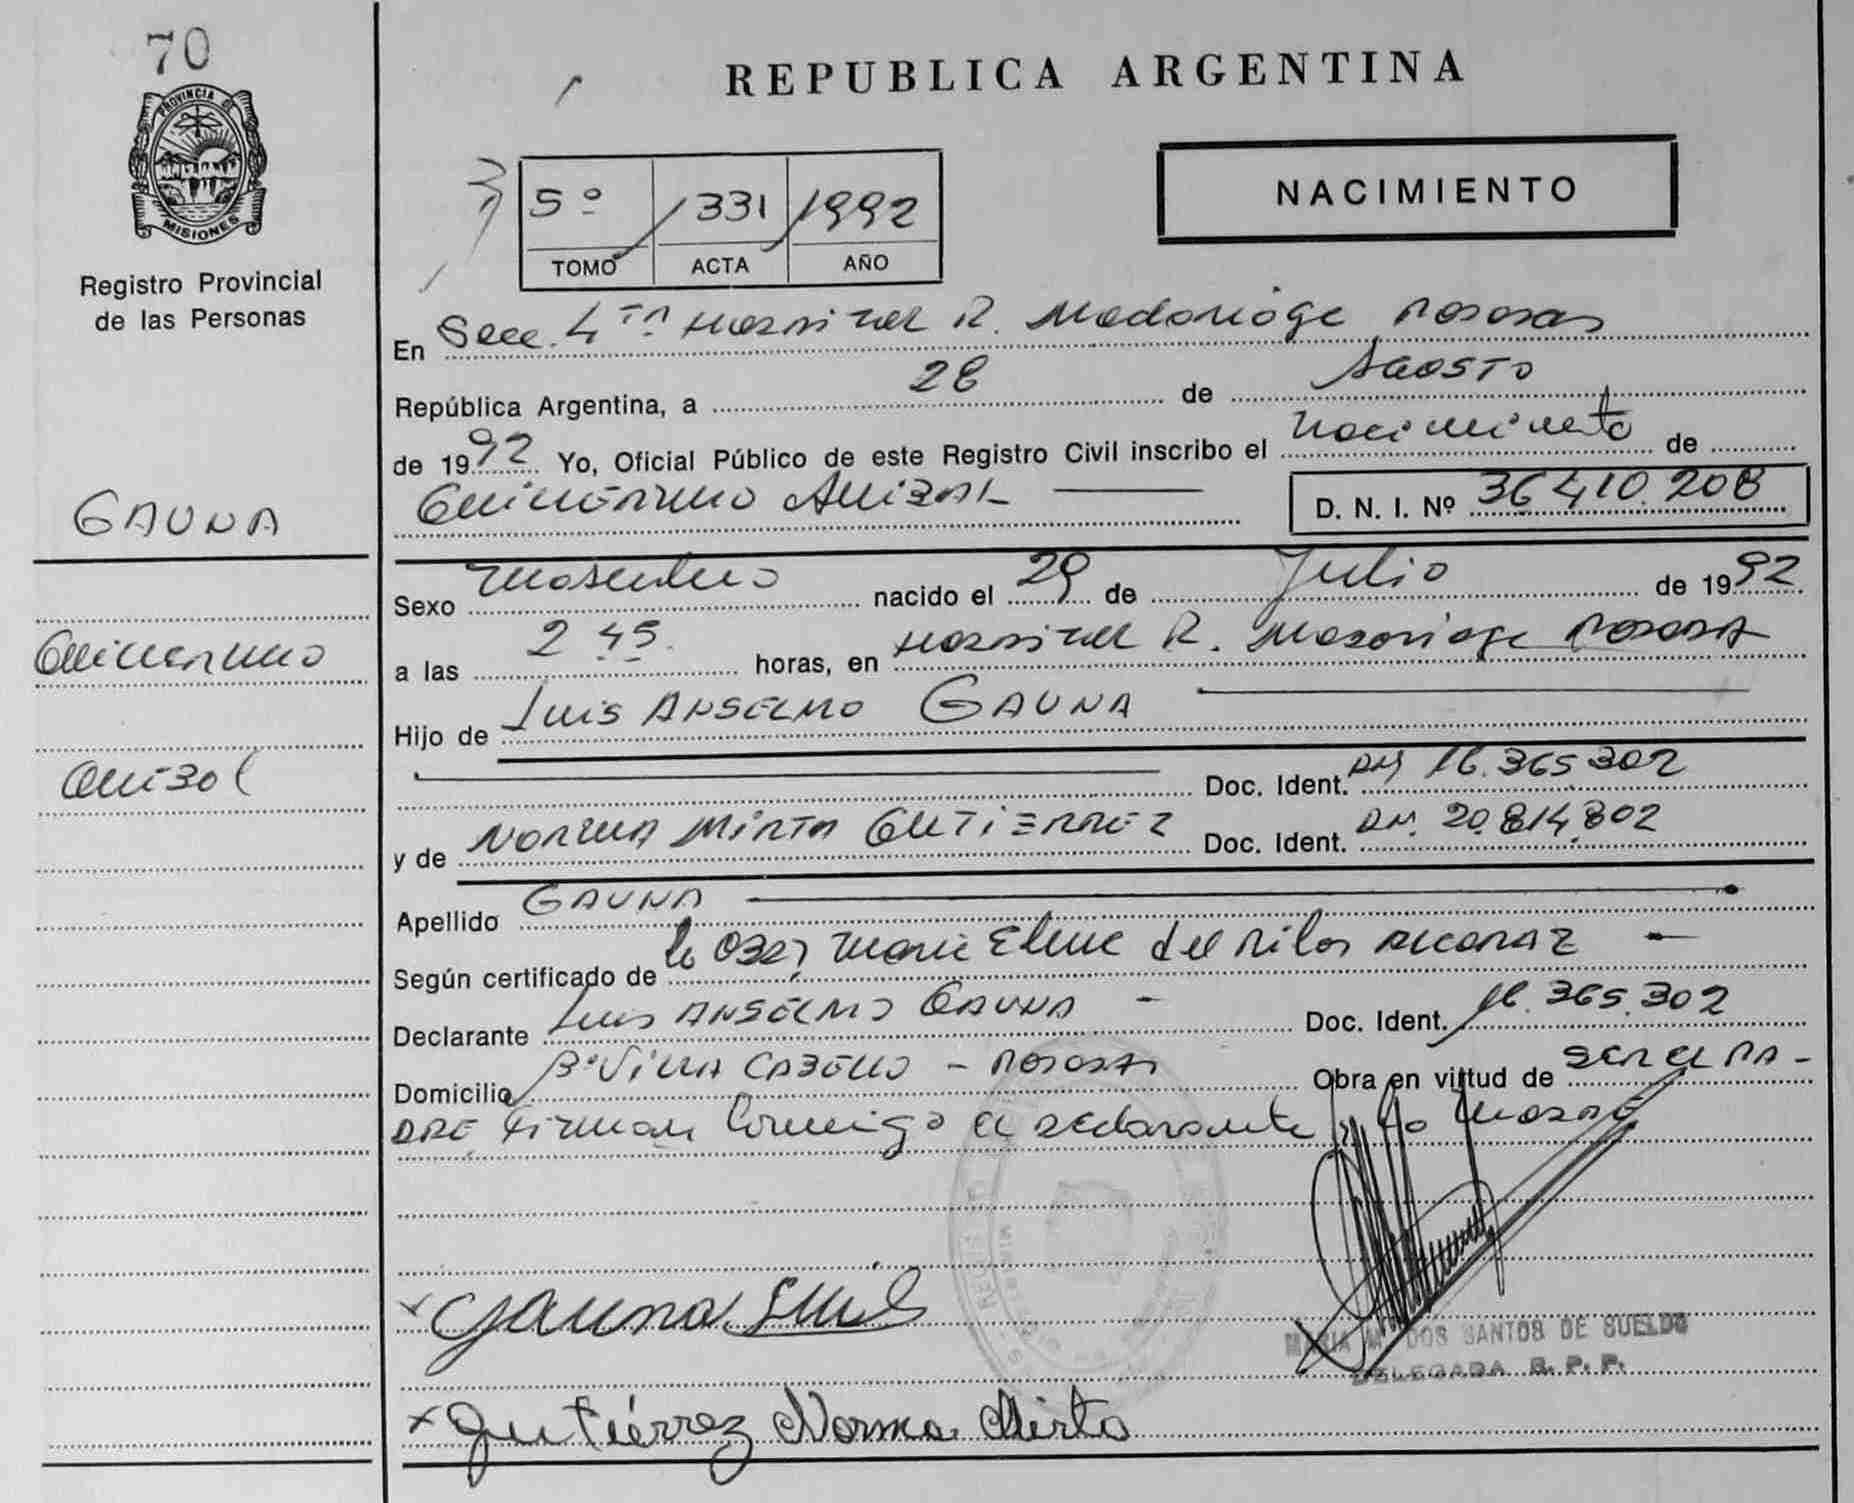 70
PROVINCIA DE
MISIONES
Registro Provincial
de las Personas
GAUNA
Guillermo
Anibal
REPUBLICA ARGENTINA
NACIMIENTO
5º 1331 1992
TOMO ACTA AÑO
En Secc. 4ta Hospital R. Madariaga Posadas
República Argentina, a 28 de Agosto
de 1992 Yo, Oficial Público de este Registro Civil inscribo el nacimiento de
Guillermo Anibal D. N. I. Nº 36.410.208
Sexo masculino nacido el 29 de Julio de 1992
a las 2 45 horas, en Hospital R. Madariaga Posadas
Hijo de Luis Anselmo GAUNA
Doc. Ident. DNI 16.365.302
y de Norma Mirta Gutierrez Doc. Ident. DNI 20.814.802
Apellido GAUNA
Según certificado de la Obst. Maria Elena del Pilar Alcaraz
Declarante Luis Anselmo Gauna Doc. Ident. 16.365.302
Domicilio Bº Villa Cabello - Posadas Obra en virtud de ser el pa-
dre Firman conmigo el declarante y la madre
Gauna Luis
MARIA M. DOS SANTOS DE SUELDO
DELEGADA R. P. P.
Gutiérrez Norma Mirta